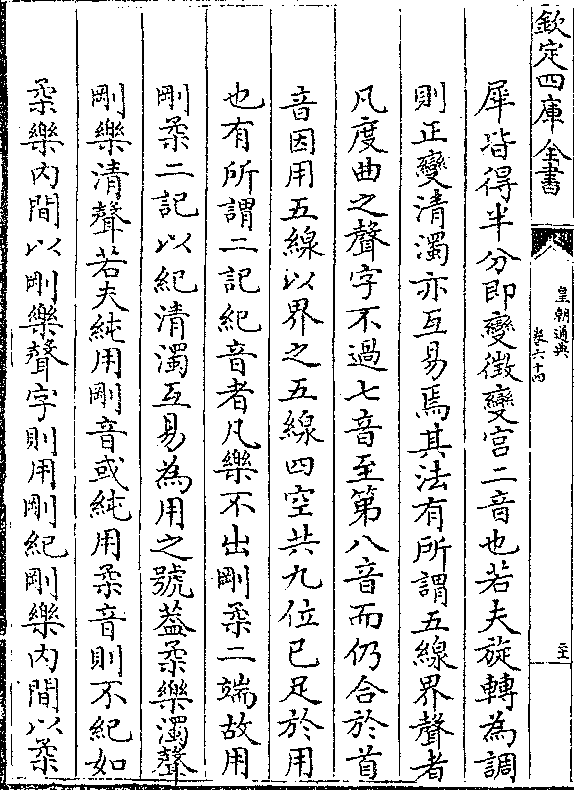 欽定四庫全書
皇朝通典
卷六十四
犀皆得半分即變徵變宮二音也若夫旋轉為調
則正變清濁亦互易焉其法有所謂五線界聲者
凡度曲之聲字不過七音至第八音而仍合於首
音因用五線以界之五線四空共九位已足於用
也有所謂二記紀音者凡樂不出剛柔二端故用
剛柔二記以紀清濁互易為用之號葢柔樂濁聲
剛樂清聲若夫純用剛音或純用柔音則不紀如
柔樂內間以剛樂聲字則用剛紀剛樂內間以柔